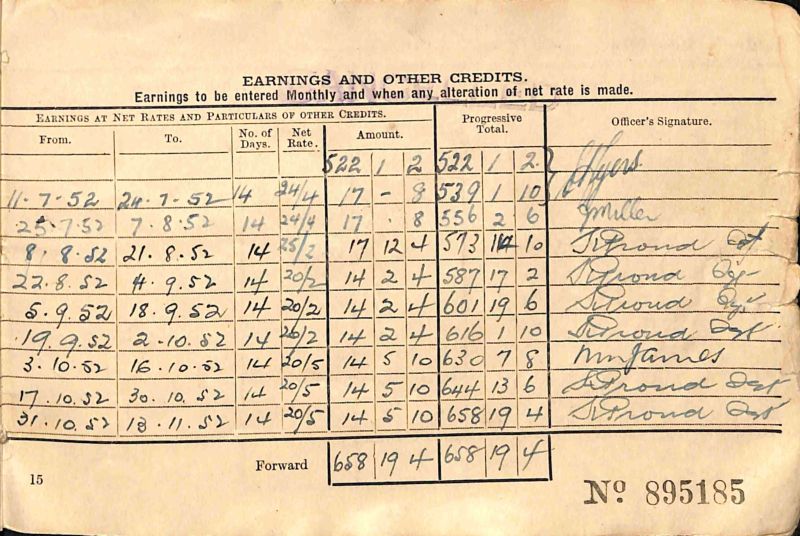 EARNINGS AND OTHER CREDITS.
Earnings to be entered Monthly and when any alteration of net rate is made.
EARNINGS AT NET RATES AND PARTICULARS OF OTHER CREDITS. Progressive Total. Officer's Signature.
From. To. No. of Days. Net Rate. Amount.
522 1 2 522 1 2
11-7-52 24-7-52 14 24/4 17 - 8 539 1 10
25-7-52 7.8.52 14 24/4 17 . 8 556 2 6 Miller
8.8.52 21.8.52 14 25/2 17 12 4 573 14 10 Proud Sgt
22.8.52 4.9.52 14 20/2 14 2 4 587 17 2 Proud Sgt
5.9.52 18.9.52 14 20/2 14 2 4 601 19 6 Proud Sgt
19.9.52 2.10.52 14 20/2 14 2 4 616 1 10 Proud Sgt
3.10.52 16.10.52 14 20/5 14 5 10 630 7 8 James
17.10.52 30.10.52 14 20/5 14 5 10 644 13 6 Proud Sgt
31.10.52 13.11.52 14 20/5 14 5 10 658 19 4 Proud Sgt
Forward 658 19 4 658 19 4
15
No 895185